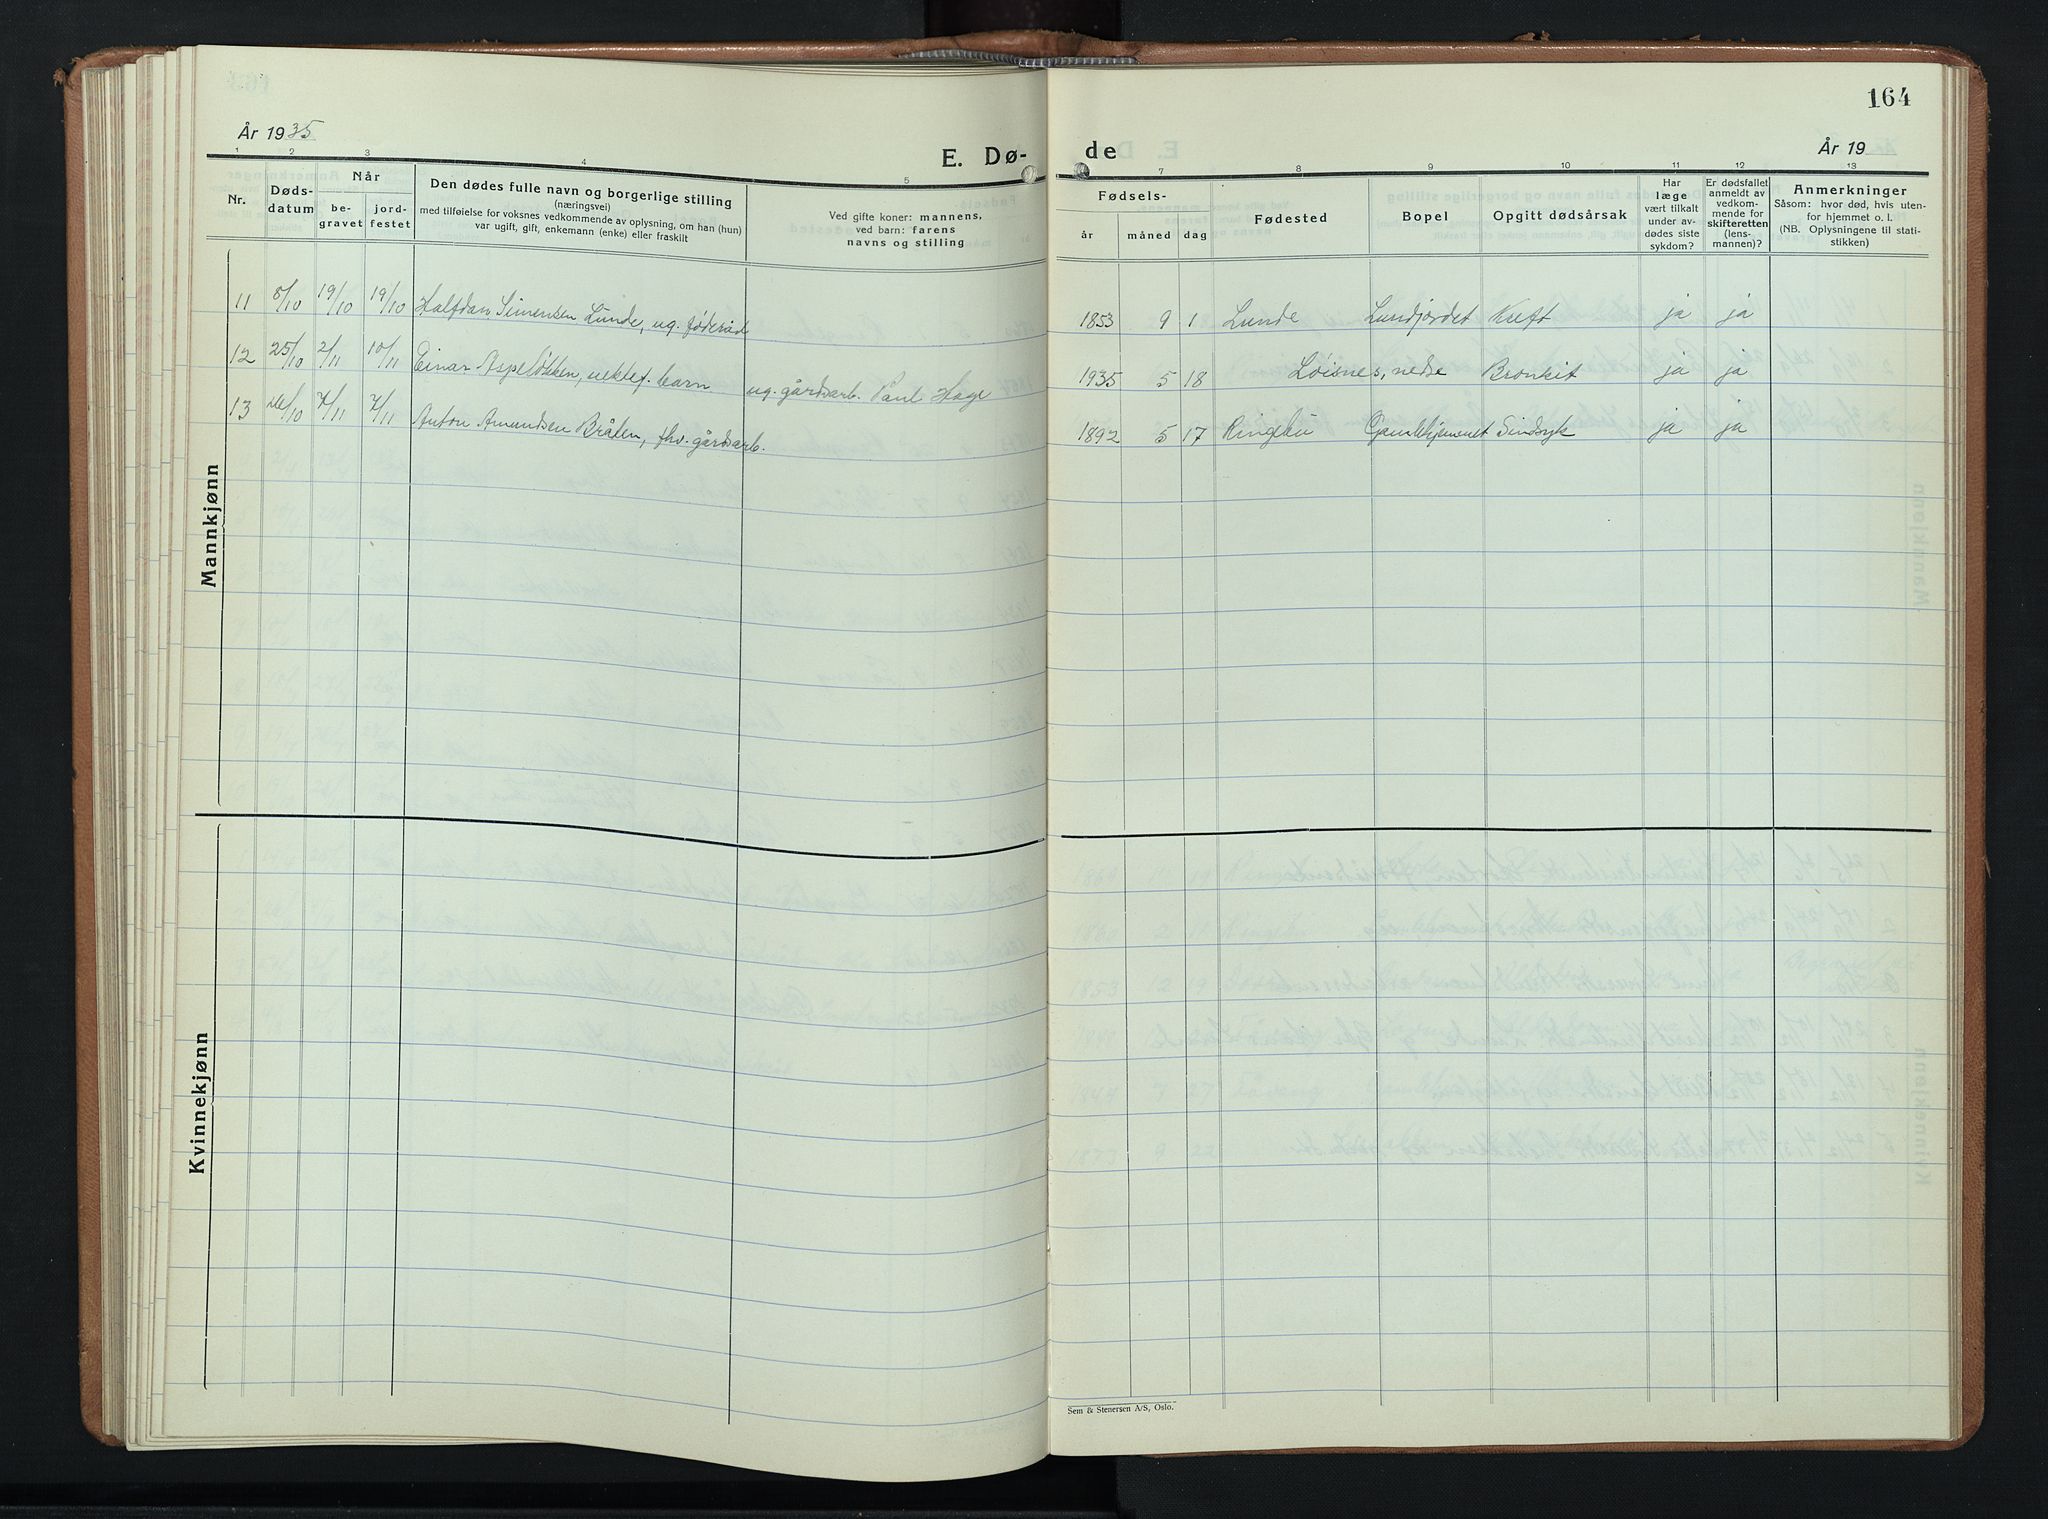 164
År 1935
E. Dø-
de
År 19
1 2 3 4 5 7 8 9 10 11 12 13
Nr.
Døds-
datum
Når
be-
gravet
jord-
festet
Den dødes fulle navn og borgerlige stilling
(næringsvei)
med tilføielse for voksnes vedkommende av oplysning, om han (hun)
var ugift, gift, enkemann (enke) eller fraskilt
Ved gifte koner: mannens,
ved barn: farens
navns og stilling
Fødsels-
år måned dag
Fødested
Bopel
Opgitt dødsårsak
Har
læge
vært tilkalt
under av-
dødes siste
sykdom?
Er dødsfallet
anmeldt av
vedkom-
mende for
skifteretten
(lens-
mannen)?
Anmerkninger
Såsom: hvor død, hvis uten-
for hjemmet o. l.
(NB. Oplysningene til stati-
stikken)
Mannkjønn
11 8/10 19/10 19/10 Halfdan Simensen Lunde, ug. føderåd 1853 9 1 Lunde Lundjordet Kreft ja ja
12 25/10 2/11 10/11 Einar Aspeløkken, uektef. barn ug. gårdsarb. Paul Hage 1935 5 18 Loisnes, nedre Bronkit ja ja
13 26/10 7/11 7/11 Anton Amundsen Bråten, fhv. gårdsarb. 1892 5 17 Ringebu Gamlehjemmet Sindsyk ja ja
Kvinnekjønn
Sem & Stenersen A/S, Oslo.